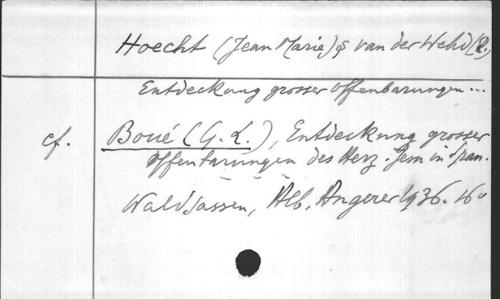 Hoecht (Jean Marie) & van der Wehd (R.)
Entdeckung grosser Offenbarungen...
cf. Boué (G. L.), Entdeckung grosser
Offenbarungen des Herz. Jesu in Span.
Waldsassen, Alb. Angerer 1936. 16°